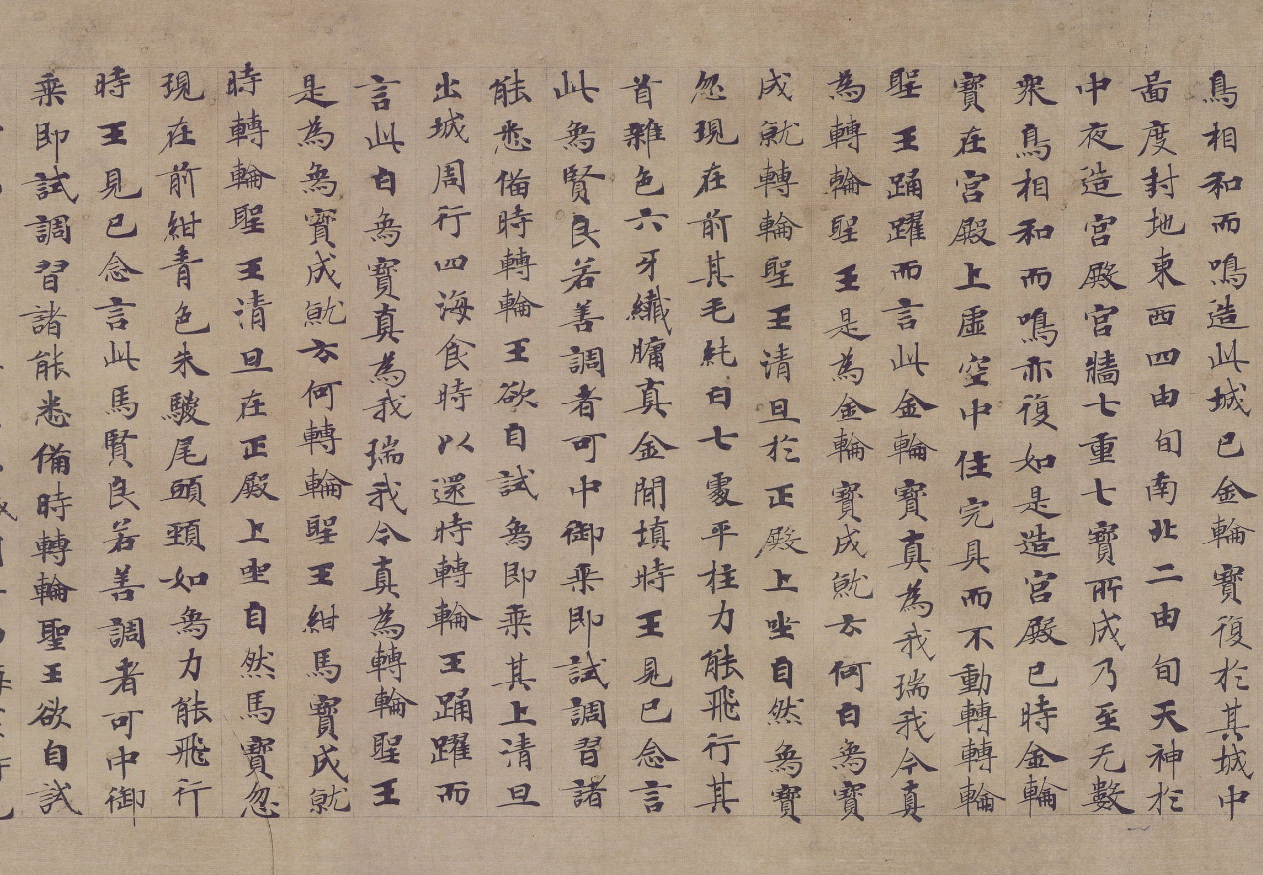 鳥相和而鳴造此城已金輪寶復於其城中
啚度封地東西四由旬南北二由旬天神於
中夜造宮殿宮牆七重七寶所成乃至无數
衆鳥相和而鳴亦復如是造宮殿已時金輪
寶在宮殿上虛空中住完具而不動轉轉輪
聖王踊躍而言此金輪寶真為我瑞我今真
為轉輪聖王是為金輪寶成就云何白象寶
成就轉輪聖王清旦於正殿上坐自然象寶
忽現在前其毛純白七處平柱力能飛行其
首雜色六牙纖𦟛真金間填時王見已念言
此象賢良若善調者可中御乘即試調習諸
能悉備時轉輪王欲自試象即乘其上清旦
出城周行四海食時以還時轉輪王踊躍而
言此白象寶真為我瑞我今真為轉輪聖王
是為象寶成就云何轉輪聖王紺馬寶成就
時轉輪聖王清旦在正殿上坐自然馬寶忽
現在前紺青色朱駿尾頭頸如象力能飛行
時王見已念言此馬賢良若善調者可中御
乘即試調習諸能悉備時轉輪聖王欲自試